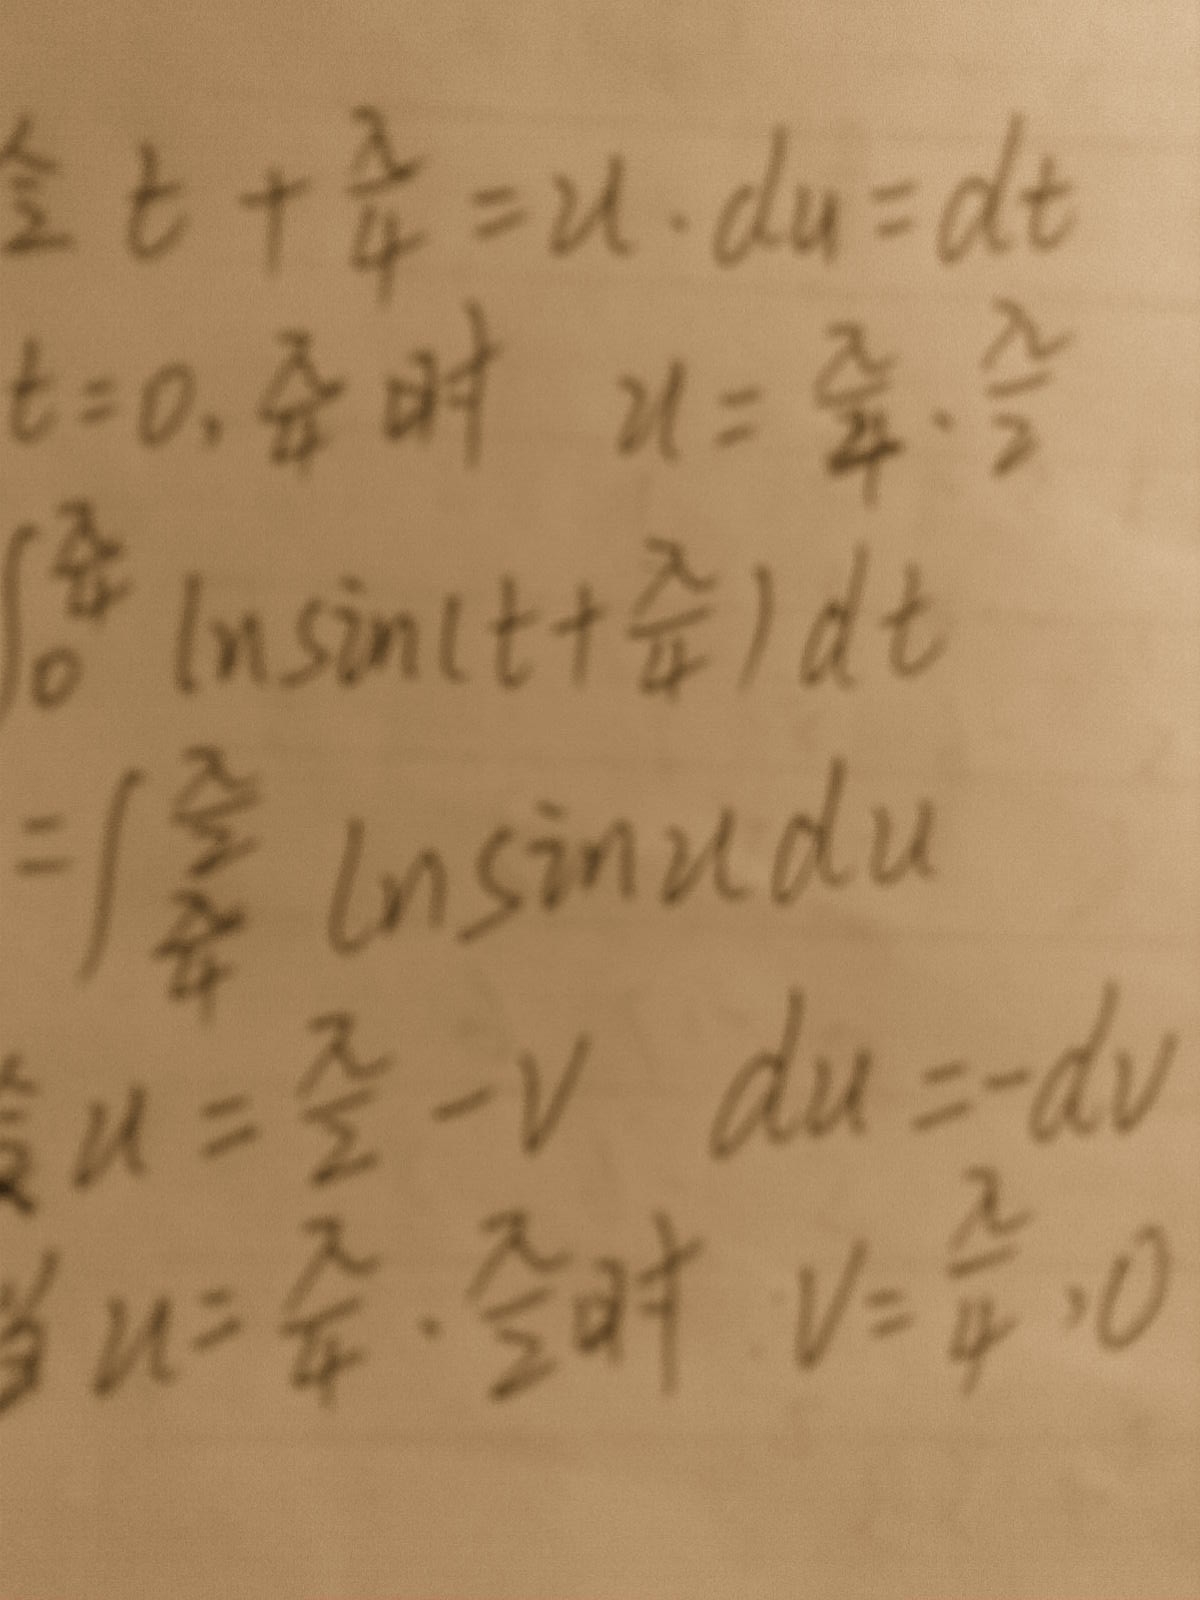 令 t + π/4 = u . du = dt
t = 0 , π/4 时 u = π/4 . π/2
∫_0^{π/4} ln sin(t + π/4) dt
= ∫_{π/4}^{π/2} ln sin u du
令 u = π/2 - v du = -dv
当 u = π/4 . π/2 时 v = π/4 , 0